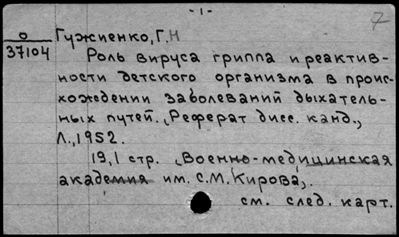 -1-
7
О
37104
Гужиенко, Г.Н
Роль вируса гриппа и реактив-
ности детского организма в проис-
хождении заболеваний дыхатель-
ных путей. „Реферат дисс. канд.„
Л., 1952.
19,1 стр. „Военно-медицинская
академия им. С.М.Кирова„.
см. след. карт.